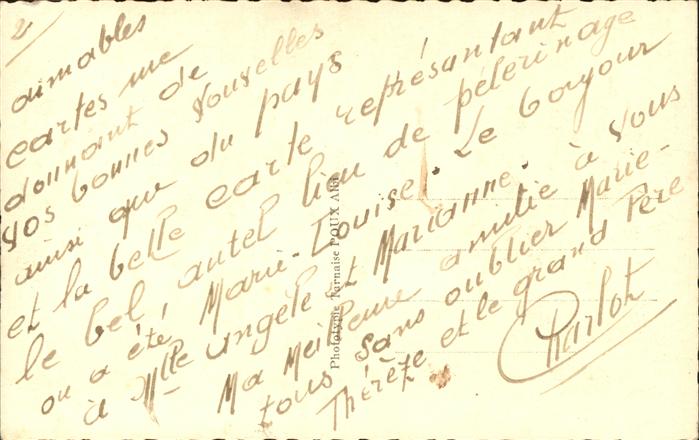 2)
aimables
cartes me
donnant de
vos bonnes nouvelles
ainsi que du pays
et la belle carte représantant
le bel autel lieu de pélerinage
ou a été Marie-Louise. Le bonjour
à Mlle Angèle et Marianne.
Ma Meilleure amitié à vous
tous sans oublier Marie-
Thérèze et le grand Père
Charlot
Phototypie Tarnaise POUX Albi